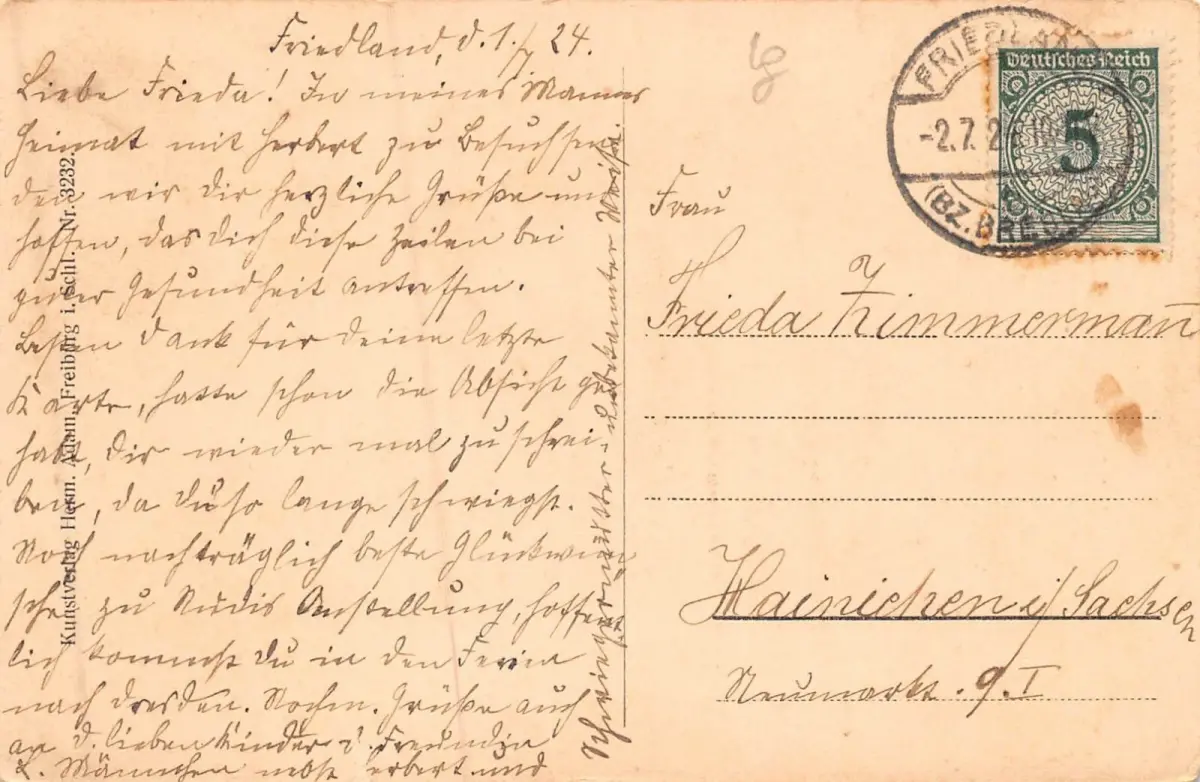 Friedland, d. 1./7 24.
Liebe Frieda! In meines Mannes
Heimat mit Herbert zu Besuch sen
den wir dir herzliche Grüße und
hoffen, das dich diese Zeilen bei
guter Gesundheit antreffen.
Besten Dank für deine letzte
Karte, hatte schon die Absicht ge
habt, dir wieder mal zu schrei-
ben, da du so lange schwiegst.
Noch nachträglich beste Glückwün
sche zu Rudis Anstellung, hoffent
lich kommst du in den Ferien
nach Dresden. Nochm. Grüße auch
an d. lieben Kinder u. Freundin
L. Männchen nebst Herbert und
Schwiegermutter. unbekannter Weise.
Kunstverlag Herm. Adam, Freiburg i. Schl. Nr. 3232.
FRIEDLAND
-2.7.2
(BZ. BRESL
Deutsches Reich
5
Frau
Frieda Zimmermann
Hainichen i/Sachsen
Neumarkt. 9. I